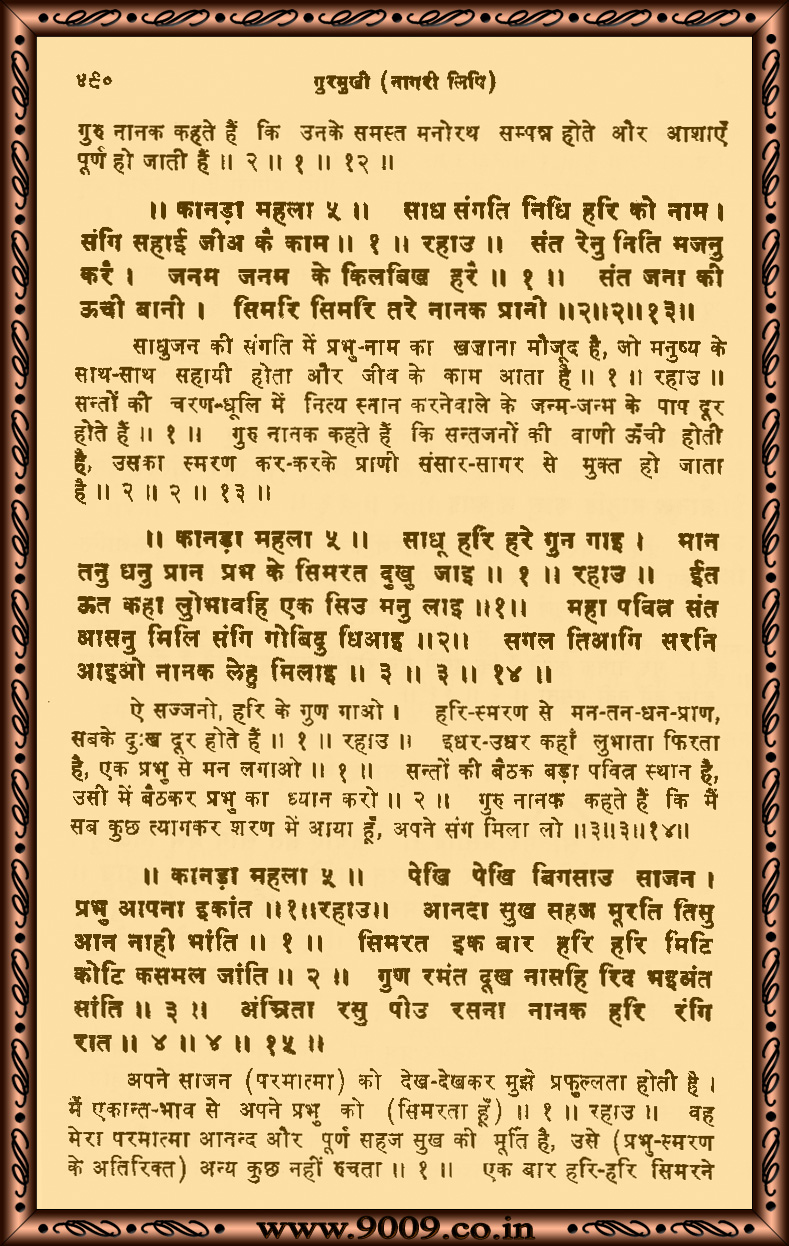 ४९० गुरमुखी (नागरी लिपि)
गुरु नानक कहते हैं कि उनके समस्त मनोरथ सम्पन्न होते और आशाएँ
पूर्ण हो जाती हैं ॥ २ ॥ १ ॥ १२ ॥
॥ कानड़ा महला ५ ॥ साध संगति निधि हरि को नाम ।
संगि सहाई जीअ कै काम ॥ १ ॥ रहाउ ॥ संत रेनु निति मजनु
करै । जनम जनम के किलबिख हरै ॥ १ ॥ संत जना की
ऊची बानी । सिमरि सिमरि तरे नानक प्रानी ॥२॥२॥१३॥
साधुजन की संगति में प्रभु-नाम का खज़ाना मौजूद है, जो मनुष्य के
साथ-साथ सहायी होता और जीव के काम आता है ॥ १ ॥ रहाउ ॥
सन्तों की चरण-धूलि में नित्य स्नान करनेवाले के जन्म-जन्म के पाप दूर
होते हैं ॥ १ ॥ गुरु नानक कहते हैं कि सन्तजनों की वाणी ऊँची होती
है, उसका स्मरण कर-करके प्राणी संसार-सागर से मुक्त हो जाता
है ॥ २ ॥ २ ॥ १३ ॥
॥ कानड़ा महला ५ ॥ साधू हरि हरे गुन गाइ । मान
तनु धनु प्रान प्रभ के सिमरत दुखु जाइ ॥ १ ॥ रहाउ ॥ ईत
ऊत कहा लुोभावहि एक सिउ मनु लाइ ॥१॥ महा पवित्र संत
आसनु मिलि संगि गोबिदु धिआइ ॥२॥ सगल तिआगि सरनि
आइओ नानक लेहु मिलाइ ॥ ३ ॥ ३ ॥ १४ ॥
ऐ सज्जनो, हरि के गुण गाओ । हरि-स्मरण से मन-तन-धन-प्राण,
सबके दुःख दूर होते हैं ॥ १ ॥ रहाउ ॥ इधर-उधर कहाँ लुभाता फिरता
है, एक प्रभु से मन लगाओ ॥ १ ॥ सन्तों की बैठक बड़ा पवित्र स्थान है,
उसी में बैठकर प्रभु का ध्यान करो ॥ २ ॥ गुरु नानक कहते हैं कि मैं
सब कुछ त्यागकर शरण में आया हूँ, अपने संग मिला लो ॥३॥३॥१४॥
॥ कानड़ा महला ५ ॥ पेखि पेखि बिगसाउ साजन ।
प्रभु आपना इकांत ॥१॥रहाउ॥ आनदा सुख सहज मूरति तिसु
आन नाही भांति ॥ १ ॥ सिमरत इक बार हरि हरि मिटि
कोटि कसमल जांति ॥ २ ॥ गुण रमंत दूख नासहि रिद भइअंत
सांति ॥ ३ ॥ अंम्रिता रसु पीउ रसना नानक हरि रंगि
रात ॥ ४ ॥ ४ ॥ १५ ॥
अपने साजन (परमात्मा) को देख-देखकर मुझे प्रफुल्लता होती है ।
मैं एकान्त-भाव से अपने प्रभु को (सिमरता हूँ) ॥ १ ॥ रहाउ ॥ वह
मेरा परमात्मा आनन्द और पूर्ण सहज सुख की मूर्ति है, उसे (प्रभु-स्मरण
के अतिरिक्त) अन्य कुछ नहीं रुचता ॥ १ ॥ एक बार हरि-हरि सिमरने
www.9009.co.in